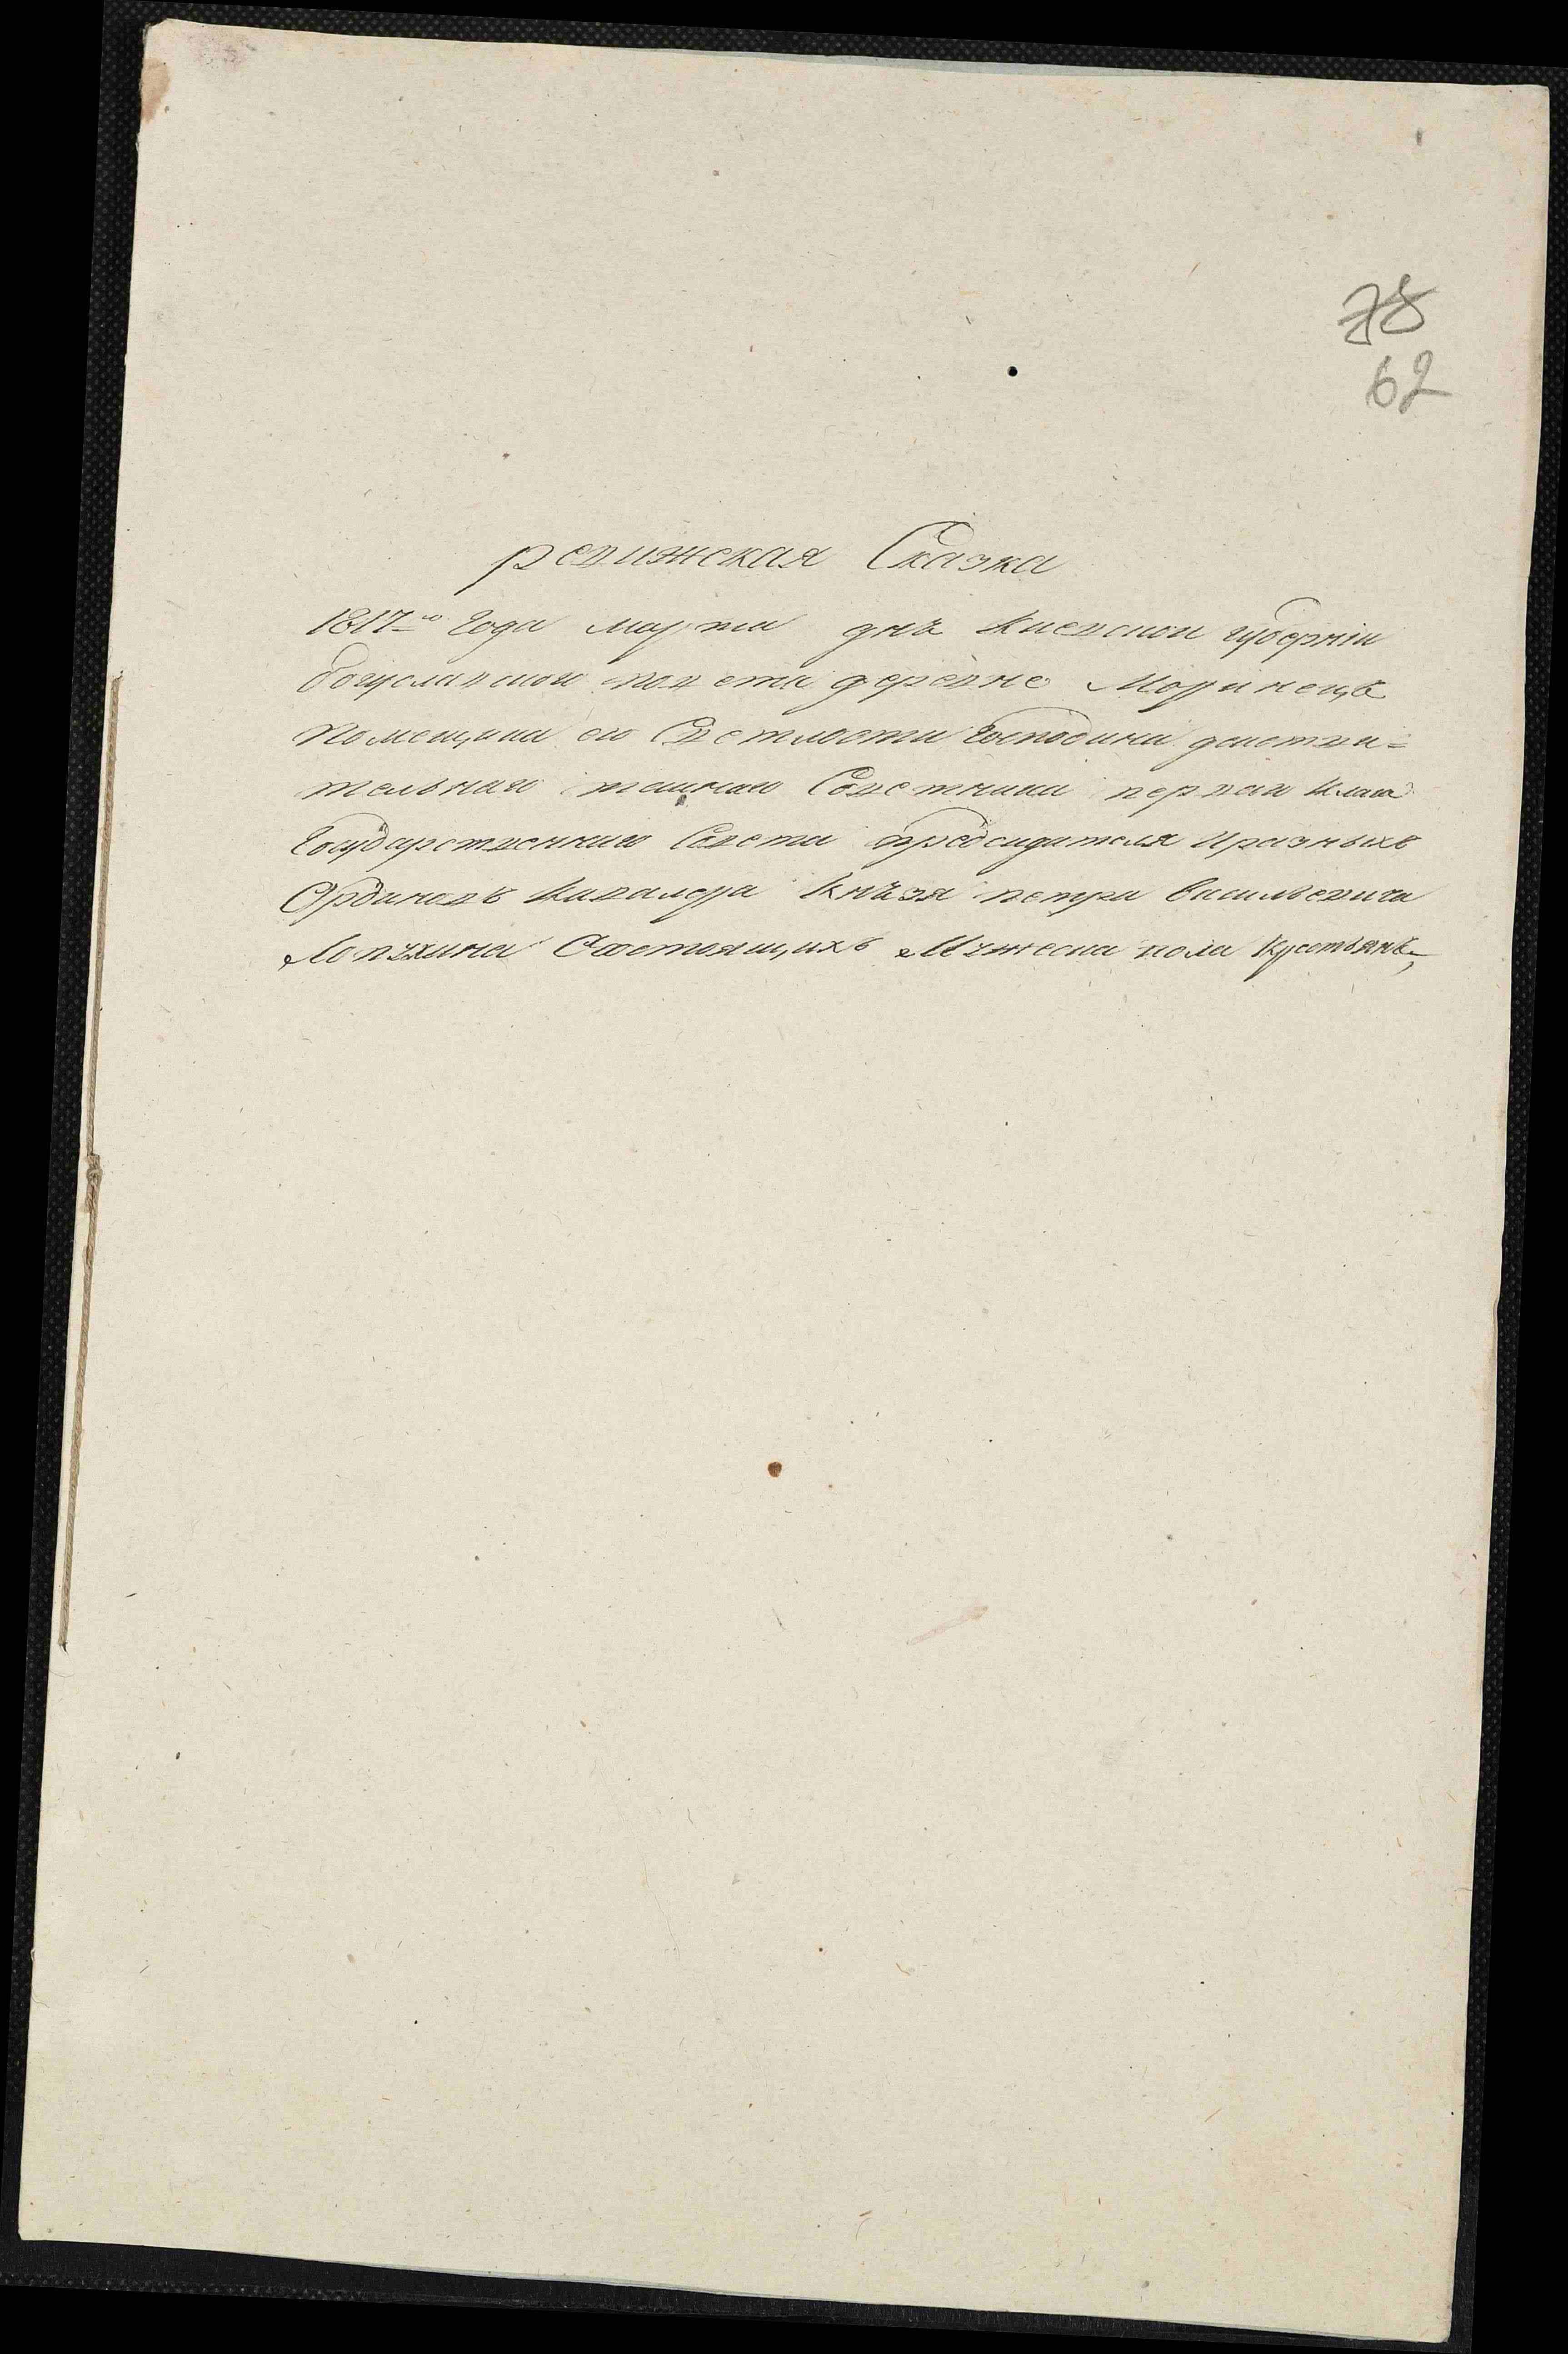 78
62
ревижская Сказка
1817-го Года марта дня Киевской губернiи
богуславской повета деревне Моринецъ
помещика его Светлости Господина действи=
тельнаго тайнаго Советника перваго класа
Государственнаго Совета председателя иразныхъ
Ординовъ Кавалера Князя петра Васильевича
Лопухина Осостоящихъ Мужеска пола крестьянъ,